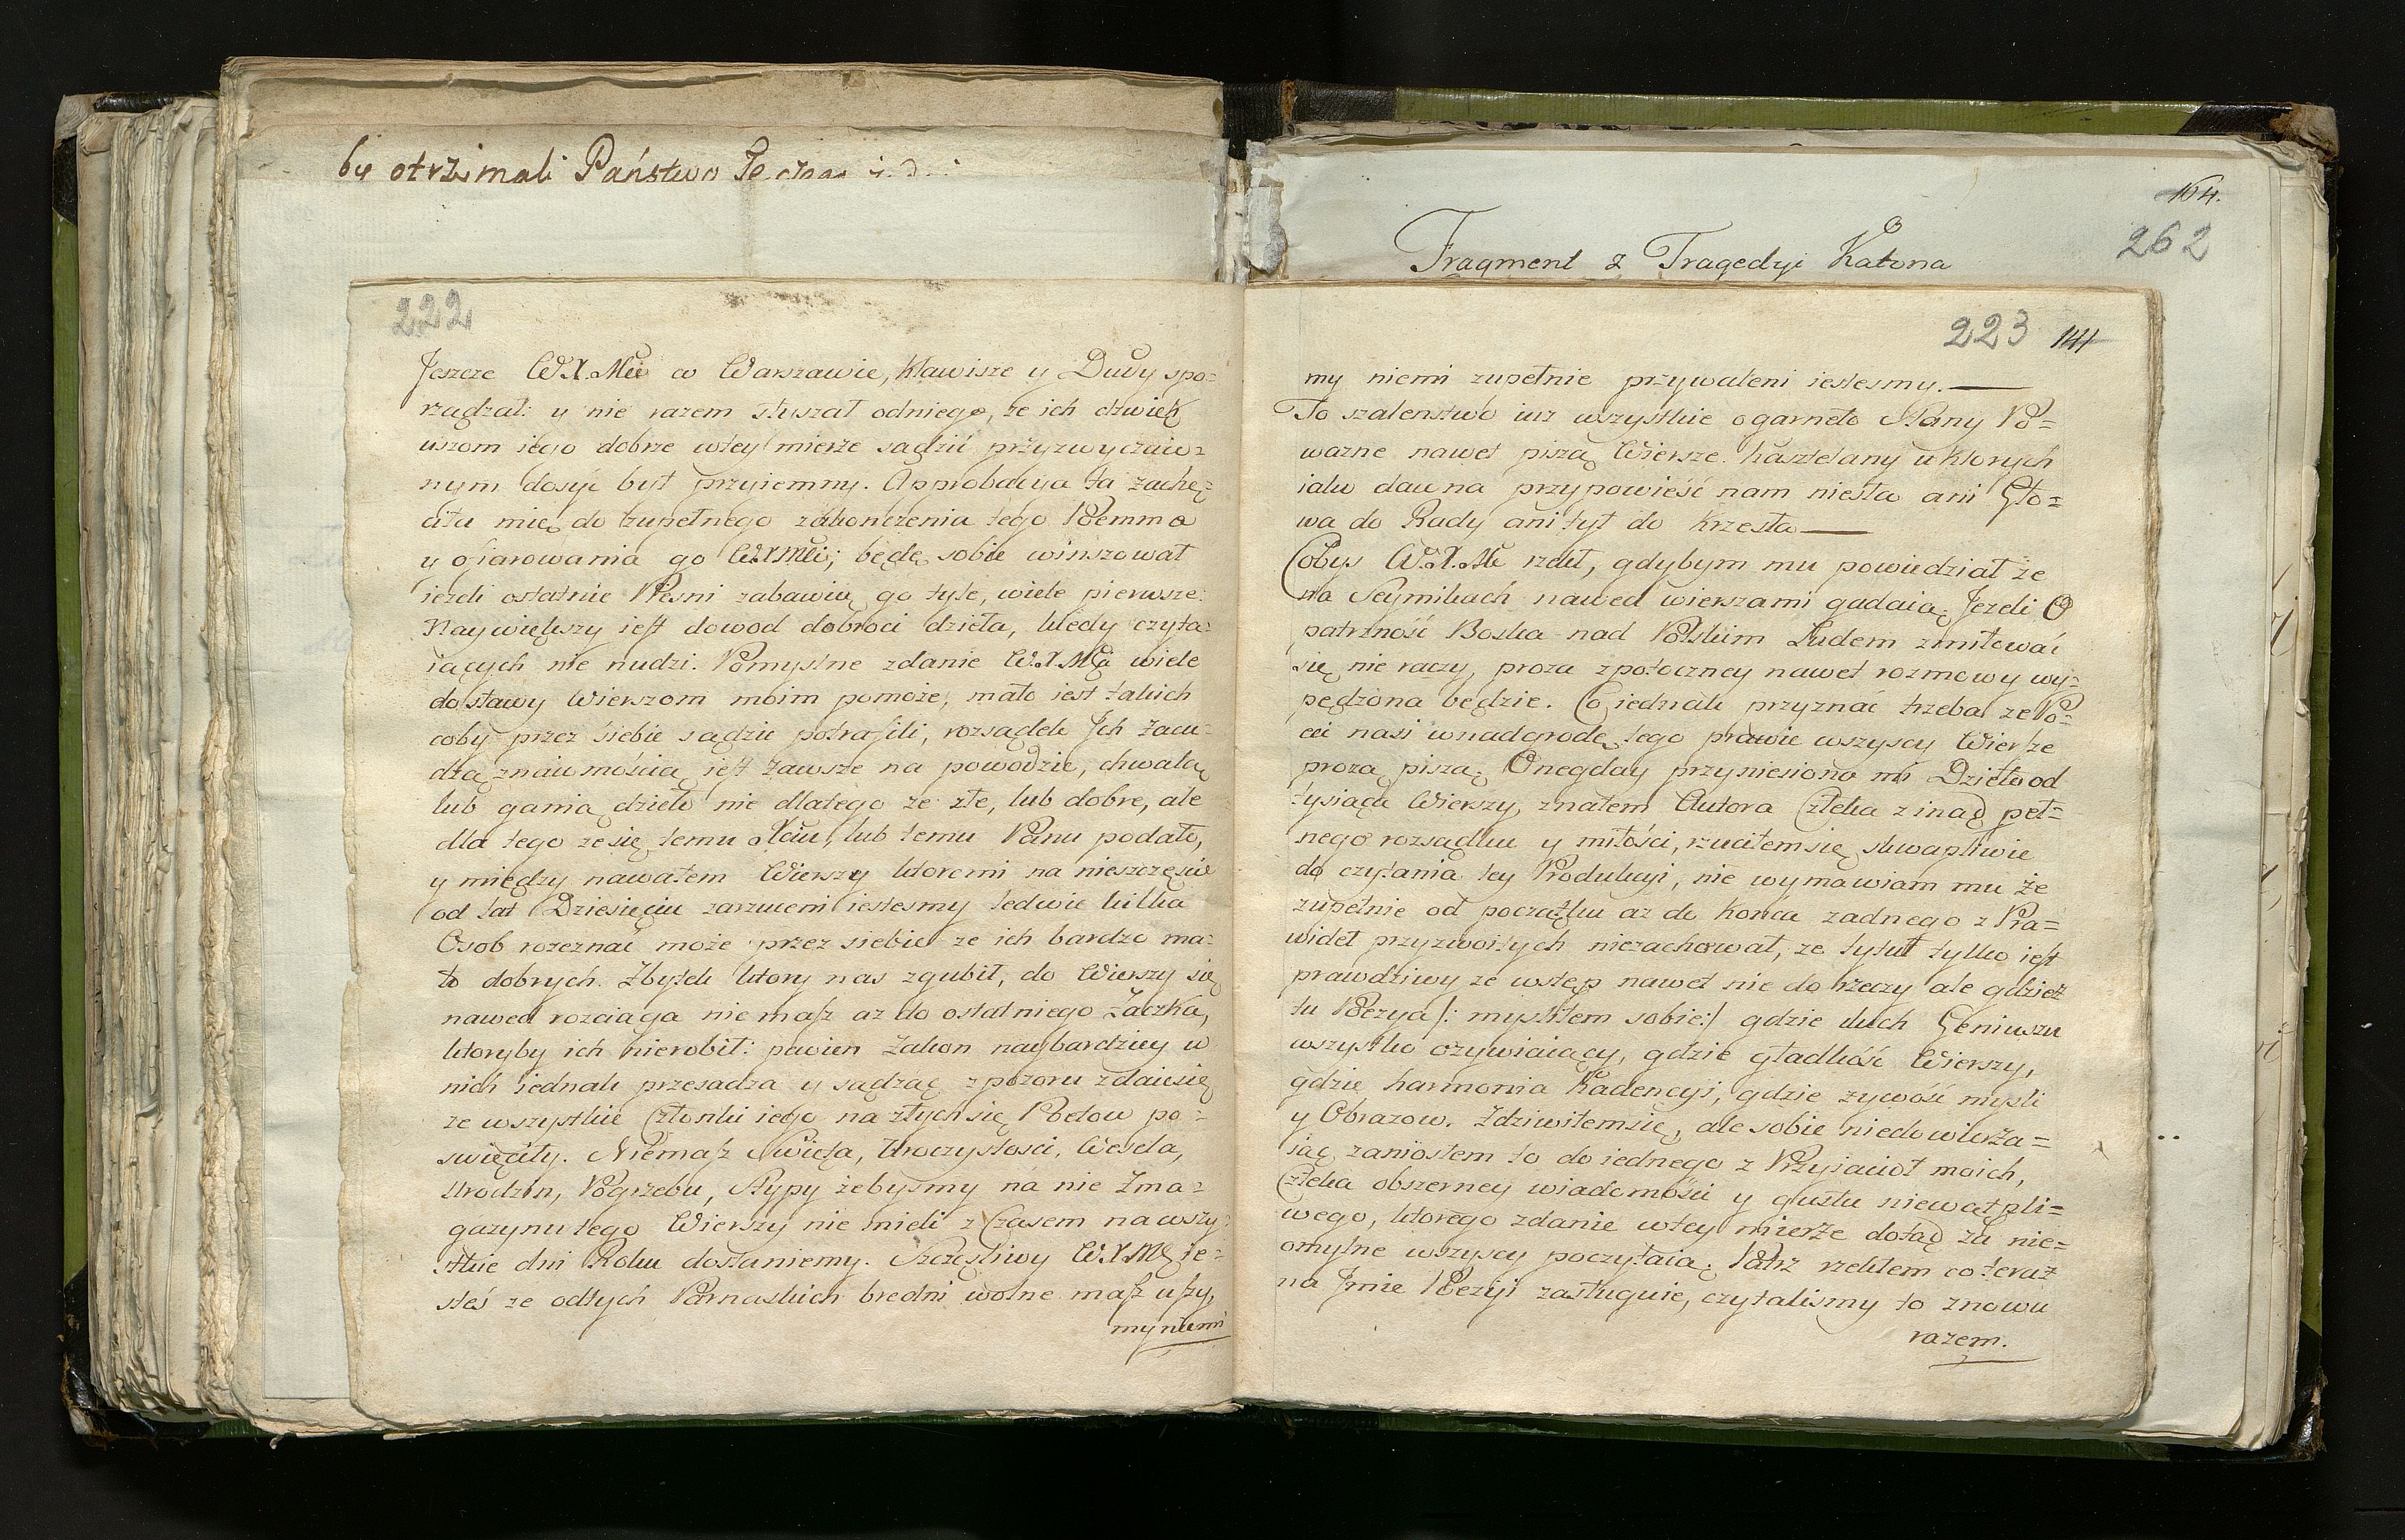 by otrzimali Państwo
222
Jeszcze W.X.Mci w Warszawie, Klawisze y Dudy spo=
rządzał: y nie razem słyszał odniego, ze ich dzwięk
uszom iego dobrze wtey mierze sądzić przyzwyczaio=
nym dosyć był przyiemny. Approbacya ta zachę=
ciła mię do zupełnego zakonczenia tego Poemma
y ofiarowania go WXMci; będę sobie winszował
iezeli ostatnie Piesni zabawią go tyle, wiele pierwsze.
Naywiększy iest dowod dobroci dzieła, kiedy czyta=
iących nie nudzi. Pomyslne zdanie W.X.Mci wiele
do sławy Wierszom moim pomoże, mało iest takich
coby przez siebie sądzić potrafili, rozsądek Jch zacu=
dzą znaiomością iest zawsze na powodzie, chwalą
lub ganią dzieło nie dlatego ze złe, lub dobre, ale
dla tego ze się temu Xciu, lub temu Panu podało,
y między nawałem Wierszy ktoremi na nieszczęscie
od lat Dziesięciu zarzuceni iestesmy ledwie kilka
Osob rozeznać może przez siebie ze ich bardzo ma=
ło dobrych. Zbytek ktory nas zgubił, do Wierszy się
nawed rozciąga niemasz az do ostatniego Żaczka,
ktoryby ich nierobił: pewien Zakon naybardziey w
nich iednak przesadza y sądząc zpozoru zdaiesię
ze wszystkie Członki iego na złych się Poetow po=
swięciły. Niemasz Swięta, Uroczystosci, Wesela,
Urodzin, Pogrzebu, Stypy żebysmy na nie Zma=
gazynu tego Wierszy nie mieli z Czasem na wszy=
stkie dni Roku dostaniemy. Szczęsliwy W.X.M ie=
steś ze odtych Parnaskich bredni wolne masz uszy,
my niemi
164.
262
Fragment z Tragedyi Katona
223 141
my niemi zupełnie przywaleni iestesmy.—
To szalenstwo iuz wszystkie ogarneło Stany Po=
wazne nawet piszą Wiersze. Kasztelany u ktorych
iako dawna przypowieść nam niesła ani Gło=
wa do Rady ani tył do Krzesła—
Cobys W.X.M rzekł, gdybym mu powiedział że
na Seymikach nawed wierszami gadaią. Jezeli O
patrzność Boska nad Polskim Ludem zmiłować
się nie raczy, proza zpotoczney nawet rozmowy wy=
pędzona będzie. Co iednak przyznać trzeba ze Po=
eci nasi wnadgrodę tego prawie wszyscy Wiersze
prozą piszą. Onegday przyniesiono mi Dzieło od
tysiąca Wierszy, znałem Autora Czleka zinąd peł=
nego rozsądku y miłości, rzuciłem się skwapliwie
do czytania tey Produkcyi, nie wymawiam mu że
zupełnie od początku az do Końca zadnego z Pra=
wideł przyzwoitych niezachował, ze tytuł tylko iest
prawdziwy ze wstęp nawet nie do rzeczy ale gdzież
tu Poezya /: myslilem sobie:/ gdzie duch Geniuszu
wszystko ozywiaiący, gdzie gładkość Wierszy,
gdzie harmonia Kadencyi, gdzie zywość mysli
y Obrazow. Zdziwiłem się, ale sobie niedowierza=
iąc zaniosłem to do iednego z Przyiacioł moich,
Czleka obszerney wiadomości y gustu niewątpli=
wego, ktorego zdanie wtey mierze dotąd za nie=
omylne wszyscy poczytaią. Patrz rzekłem co teraz
na Jmie Poezyi zasługuie, czytalismy to znowu
razem.